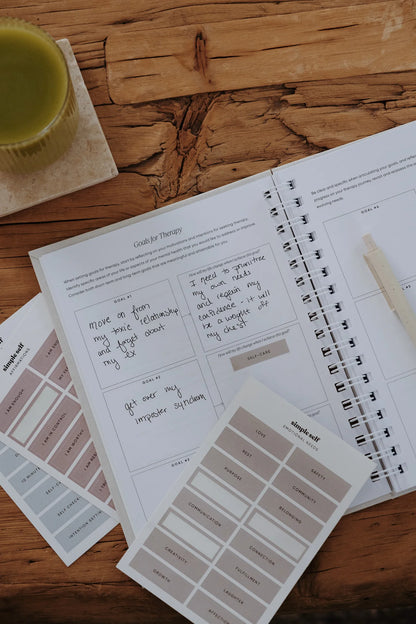 Goals for Therapy
When setting goals for therapy, start by reflecting on your motivations and intentions for seeking therapy.
Identify specific areas of your life or aspects of your mental health that you would like to address or improve.
Consider both short-term and long-term goals that are meaningful and attainable for you.
GOAL #1
move on from
my toxic relationship
and forget about
my ex
How will life change when I achieve this goal?
I need to prioritise
my own needs
and regain my
confidence - it will
be a weight off
my chest
GOAL #2
get over my
imposter syndrome
SELF-CARE
GOAL #3
Be clear and specific when articulating your goals, and
progress on your therapy journey, revisit and adjust
evolving needs.
GOAL #4
simple self
AFFIRMATIONS
I AM ENOUGH
I AM IN CONTROL
I AM WORTHY
SELF-CHECK
INTENTION SETTING
simple self
EMOTIONAL NEEDS
LOVE
SAFETY
REST
COMMUNITY
PURPOSE
BELONGING
COMMUNICATION
CONNECTION
CREATIVITY
FULFILLMENT
GROWTH
LAUGHTER
AFFECTION